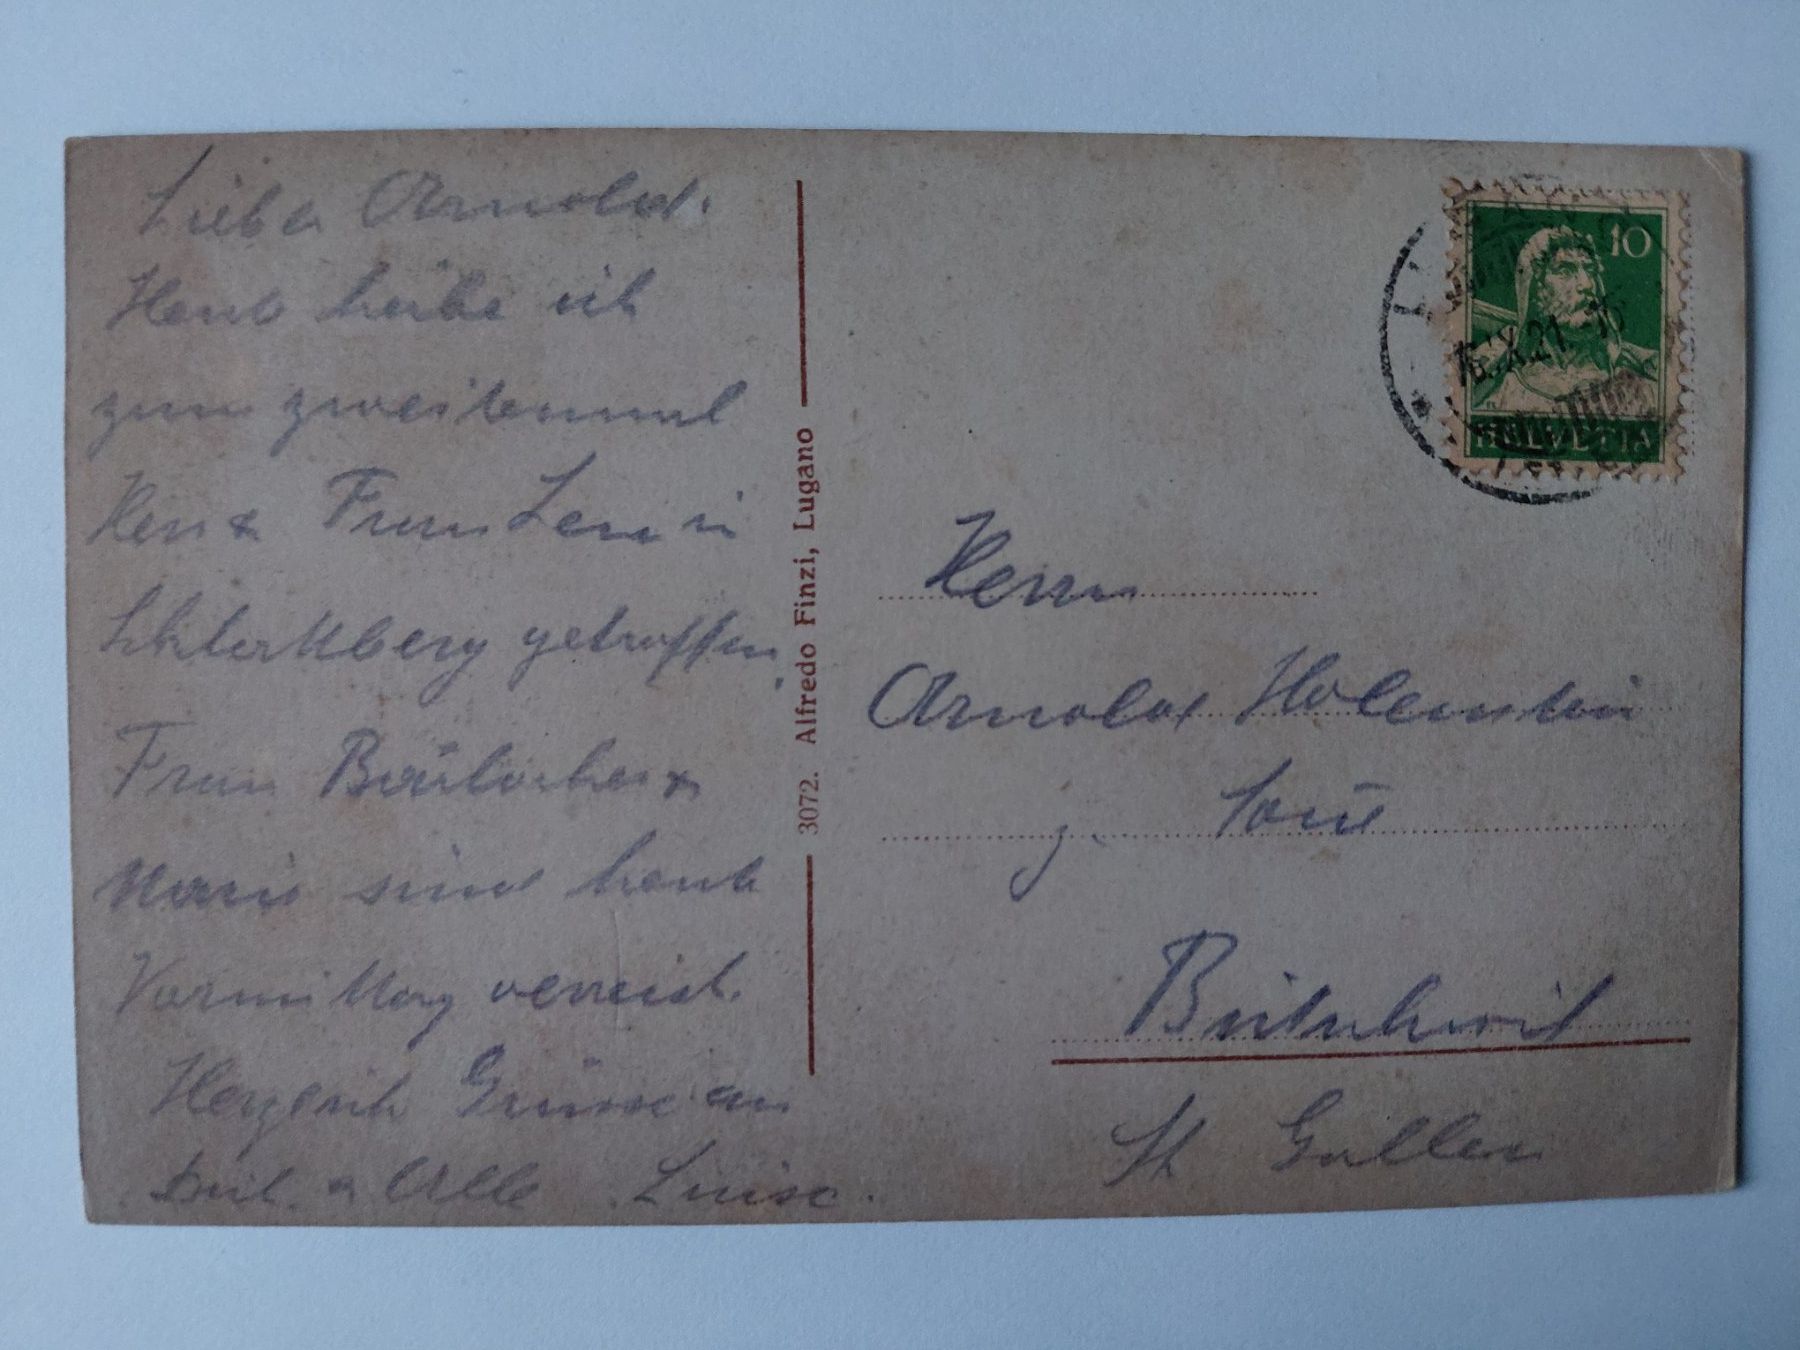 Lieber Arnold.
Heute habe ich
zum zweitenmal
Herr & Frau
getroffen,
Frau &
Marie sind heute
Vormittag verreist.
Herzlich Grüsse an
Dich & Alle Luise.
3072. Alfredo Finzi, Lugano
10
16.IX.21.-16
HELVETIA
Herrn
Arnold Holenstein
z.
Bütschwil
St Gallen